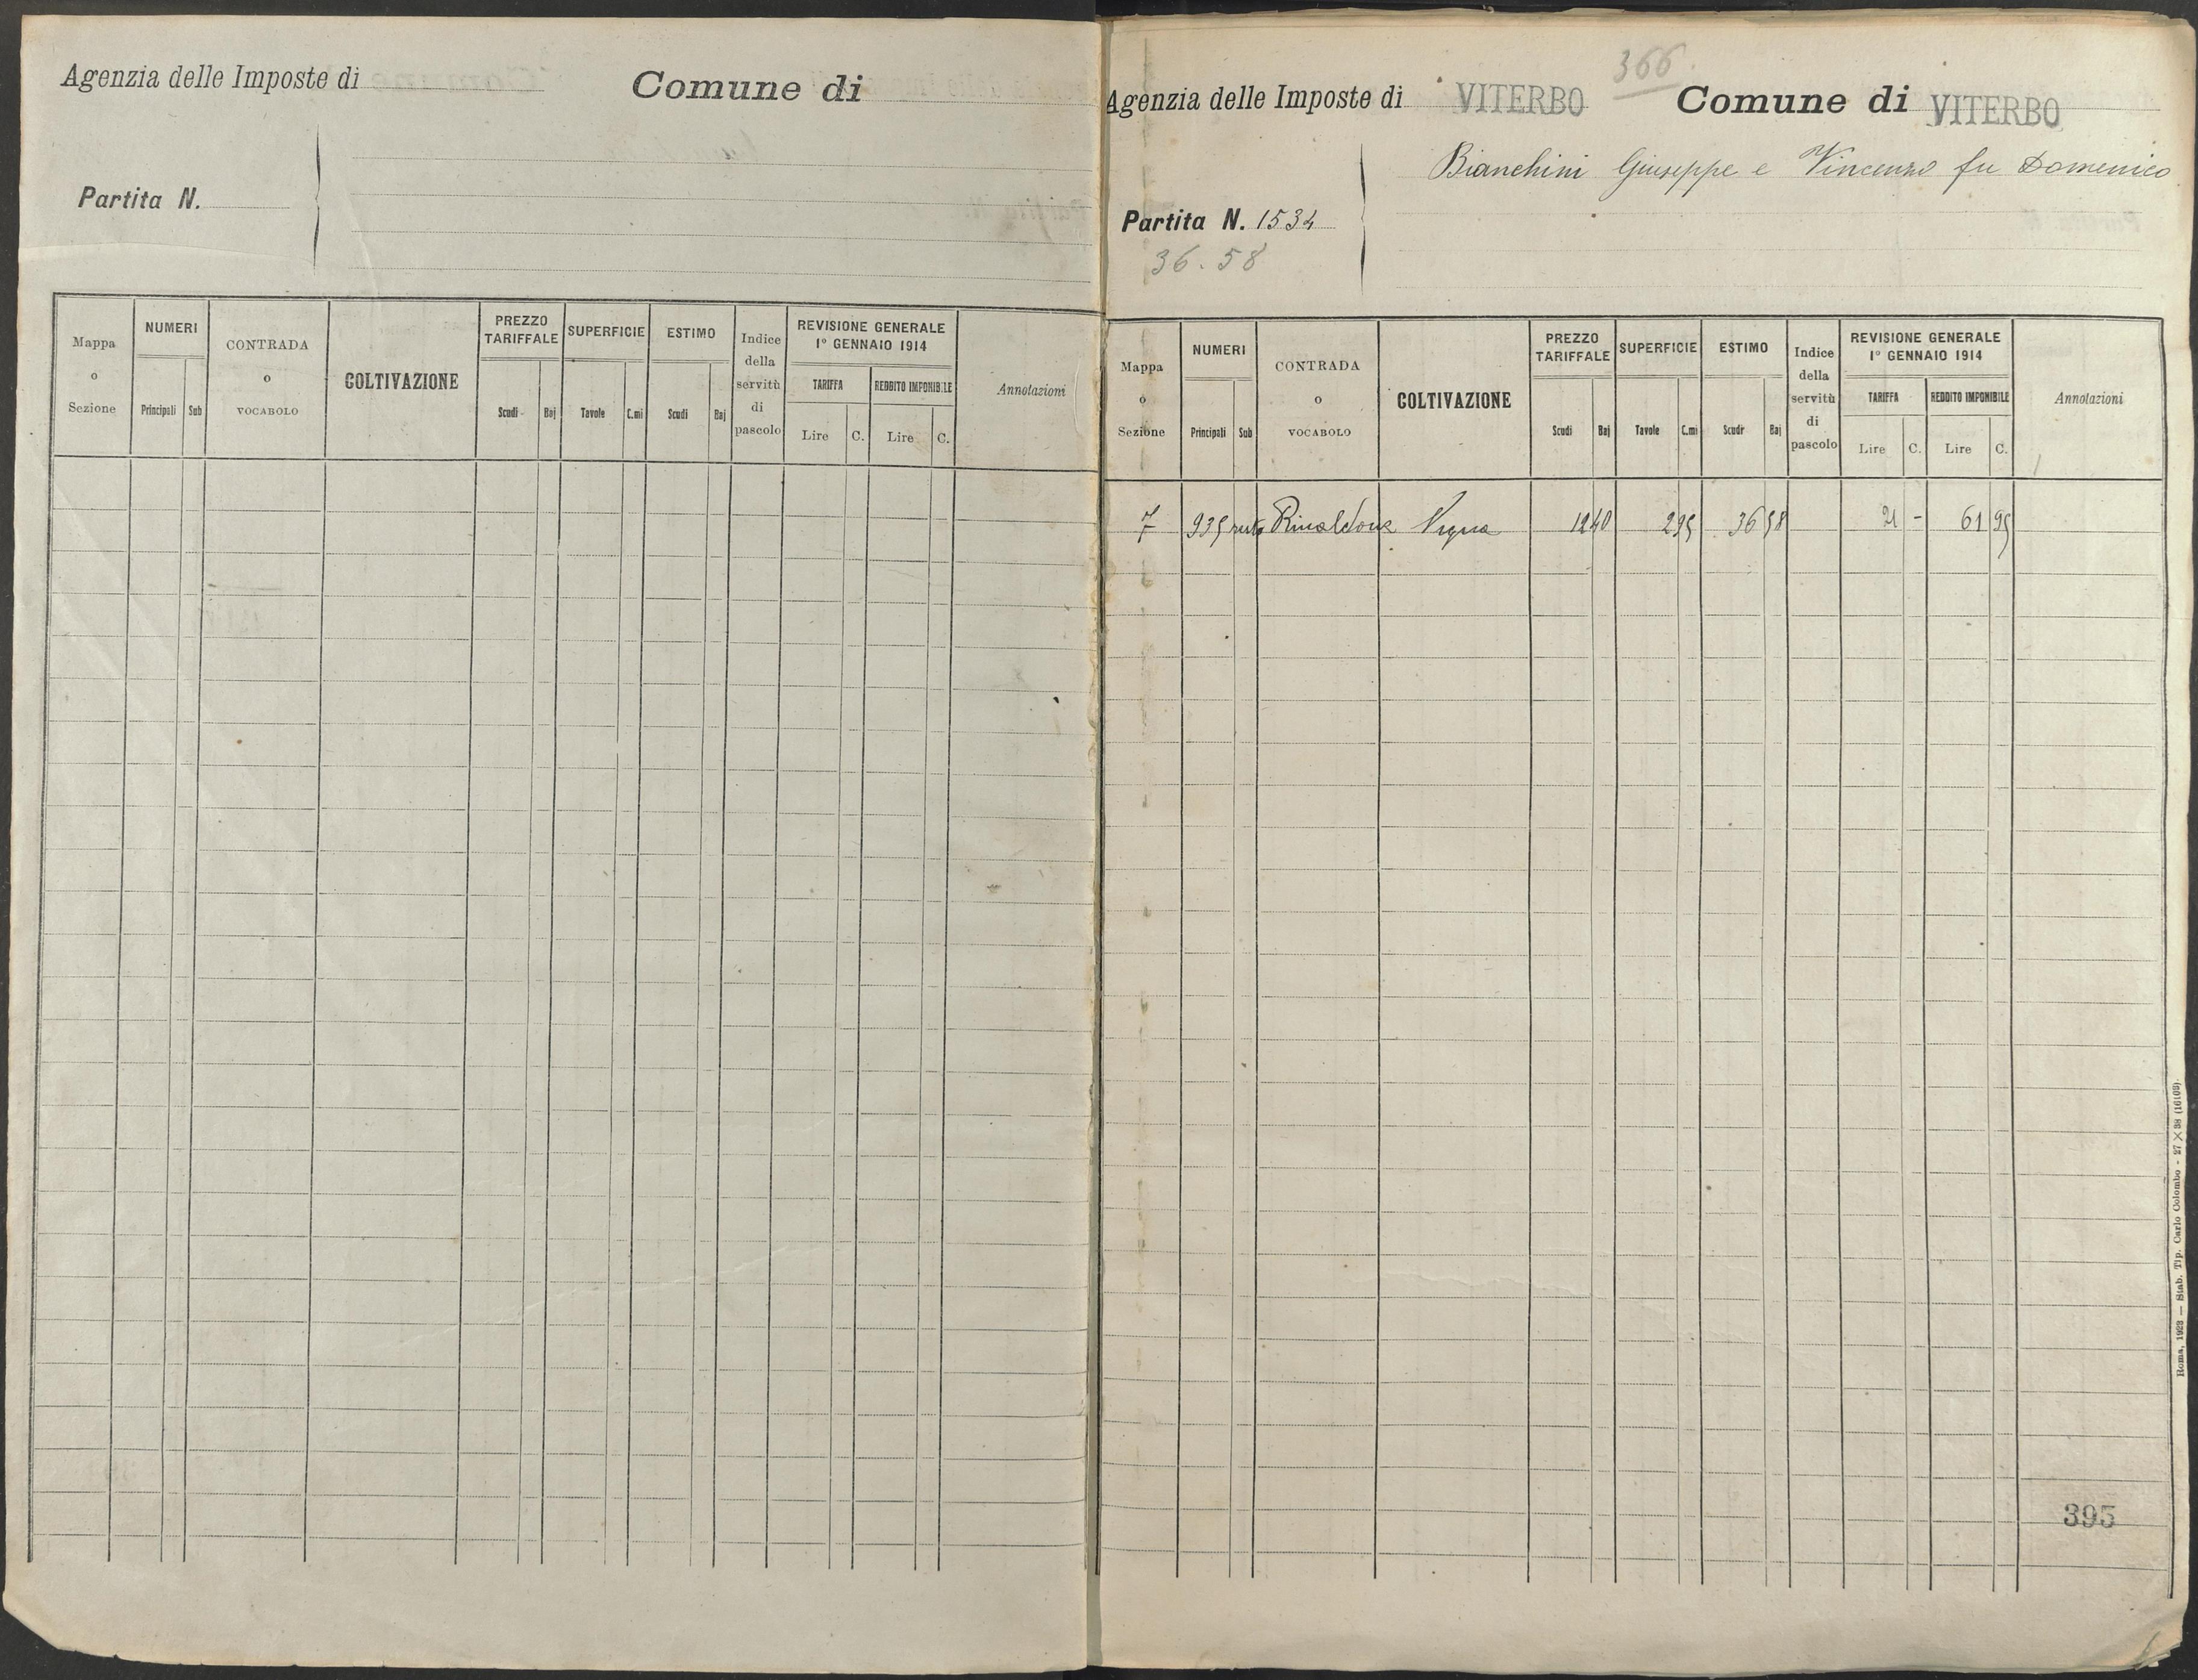 Agenzia delle Imposte di
Comune di
Partita N.
Mappa o Sezione
NUMERI
Principali
Sub
CONTRADA o VOCABOLO
COLTIVAZIONE
PREZZO TARIFFALE
Scudi
Baj
SUPERFICIE
Tavole
C.mi
ESTIMO
Scudi
Baj
Indice della servitù di pascolo
REVISIONE GENERALE
1° GENNAIO 1914
TARIFFA
Lire
C.
REDDITO IMPONIBILE
Lire
C.
Annotazioni
366
Agenzia delle Imposte di VITERBO
Comune di VITERBO
Bianchini Giuseppe e Vincenzo fu Domenico
Partita N. 1534
36.58
Mappa o Sezione
NUMERI
Principali
Sub
CONTRADA o VOCABOLO
COLTIVAZIONE
PREZZO TARIFFALE
Scudi
Baj
SUPERFICIE
Tavole
C.mi
ESTIMO
Scudi
Baj
Indice della servitù di pascolo
REVISIONE GENERALE
1° GENNAIO 1914
TARIFFA
Lire
C.
REDDITO IMPONIBILE
Lire
C.
Annotazioni
7 935 Rinaldone Vigna 12 40 2 95 36 58 21 - 61 95
395
Roma, 1923 — Stab. Tip. Carlo Colombo - 27 X 38 (16103).